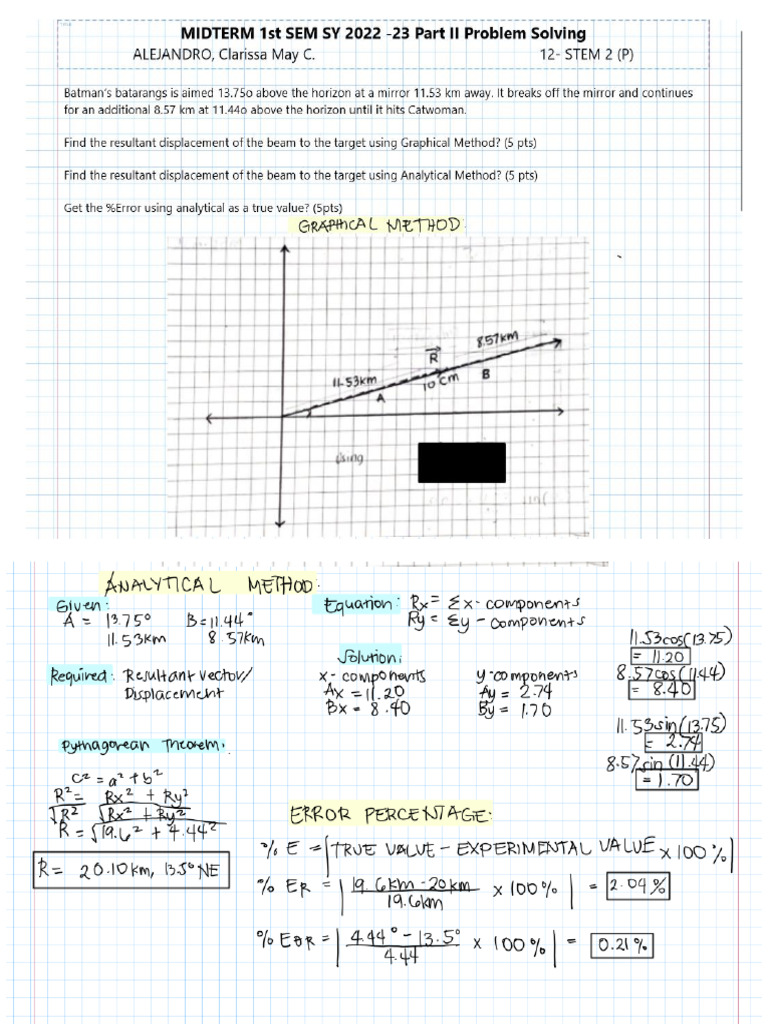 Title
MIDTERM 1st SEM SY 2022 -23 Part II Problem Solving
ALEJANDRO, Clarissa May C. 12- STEM 2 (P)
Batman's batarangs is aimed 13.75o above the horizon at a mirror 11.53 km away. It breaks off the mirror and continues
for an additional 8.57 km at 11.44o above the horizon until it hits Catwoman.
Find the resultant displacement of the beam to the target using Graphical Method? (5 pts)
Find the resultant displacement of the beam to the target using Analytical Method? (5 pts)
Get the %Error using analytical as a true value? (5pts)
GRAPHICAL METHOD:
8.57km
R
11.53km
10 cm
B
A
using
ANALYTICAL METHOD:
Given:
A = 13.75° B = 11.44°
11.53km 8.57km
Required: Resultant Vector/
Displacement
Equation: Rx = Σx - components
Ry = Σy - components
Solution:
x - components y-components
Ax = 11.20 Ay = 2.74
Bx = 8.40 By = 1.70
11.53cos(13.75)
= 11.20
8.57cos(11.44)
= 8.40
11.53sin(13.75)
= 2.74
8.57sin(11.44)
= 1.70
Pythagorean Theorem:
c² = a² + b²
R² = Rx² + Ry²
√R² √Rx² + Ry²
R = √19.6² + 4.44²
R = 20.10 km, 13.5° NE
ERROR PERCENTAGE:
% E = |TRUE VALUE - EXPERIMENTAL VALUE x 100 %|
% ER = | 19.6km - 20km x 100% | = 2.04 %
19.6km
% EθR = | 4.44° - 13.5° x 100 % | = 0.21 %
4.44